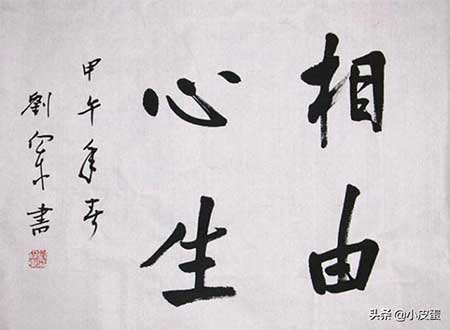 相由
心生
甲午年春
劉
書
头条 @小皮蛋